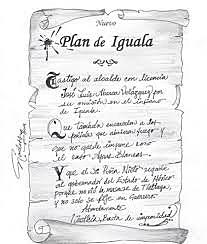 Nuevo
Plan de Iguala
Castigo al alcalde con licencia
José Luis Abarca Velázquez por
su omisión en el infierno
de Iguala.
Que también encarcelen a los
que abrieron fuego y
que no quede impune como
el caso Aguas Blancas.
Y que el Peña Nieto regañe
al gobernador del Estado de México
por la masacre de Tlatlaya,
y no solo se fije en Guerrero.
Atentamente
¡Basta de impunidad!